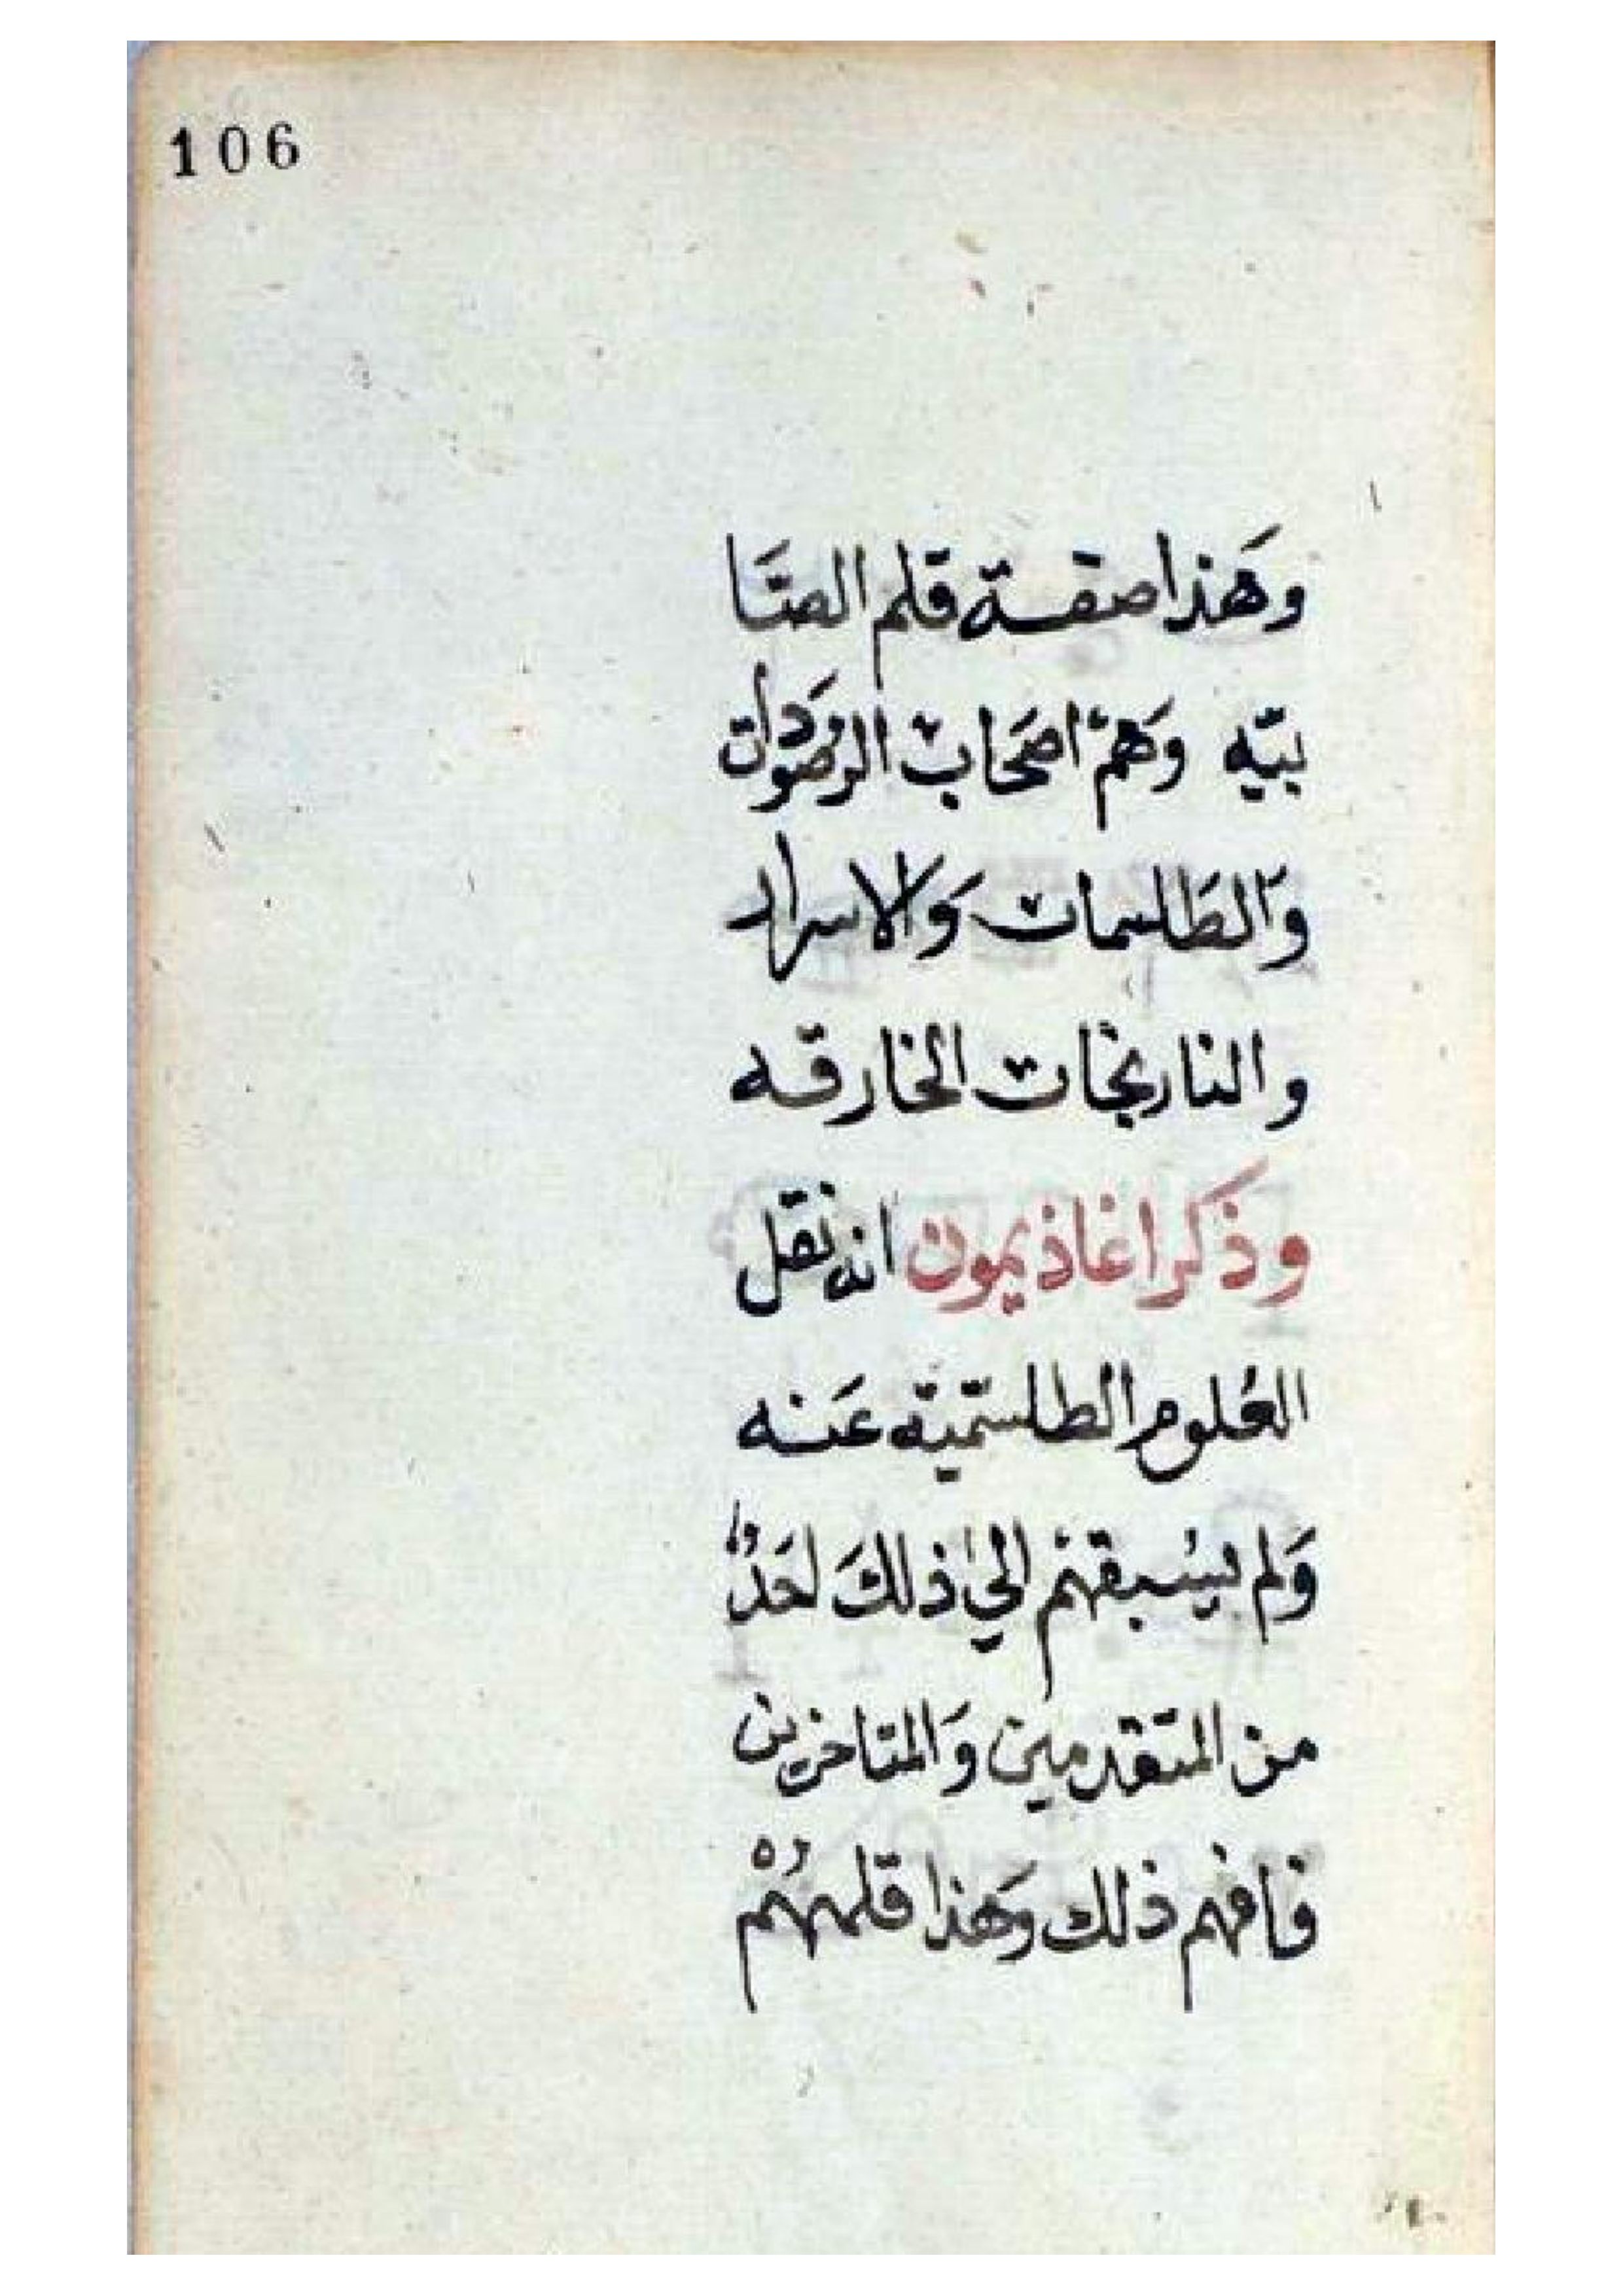 106
وَهَذا صفة قلم الصَّا
بيّه وَهمْ اصَحاب الرصَودات
وَالطَلسمات وَالاسرار
والنارنجات الخارقه
وذكر اغاذيمون انه نقل
العُلوم الطلسّميّه عَنه
وَلم يسْبقهمْ الي ذلكَ احَدٌ
من المتقدمين وَالمتاخرين
فافهم ذلك وَهذا قلمهُمْ